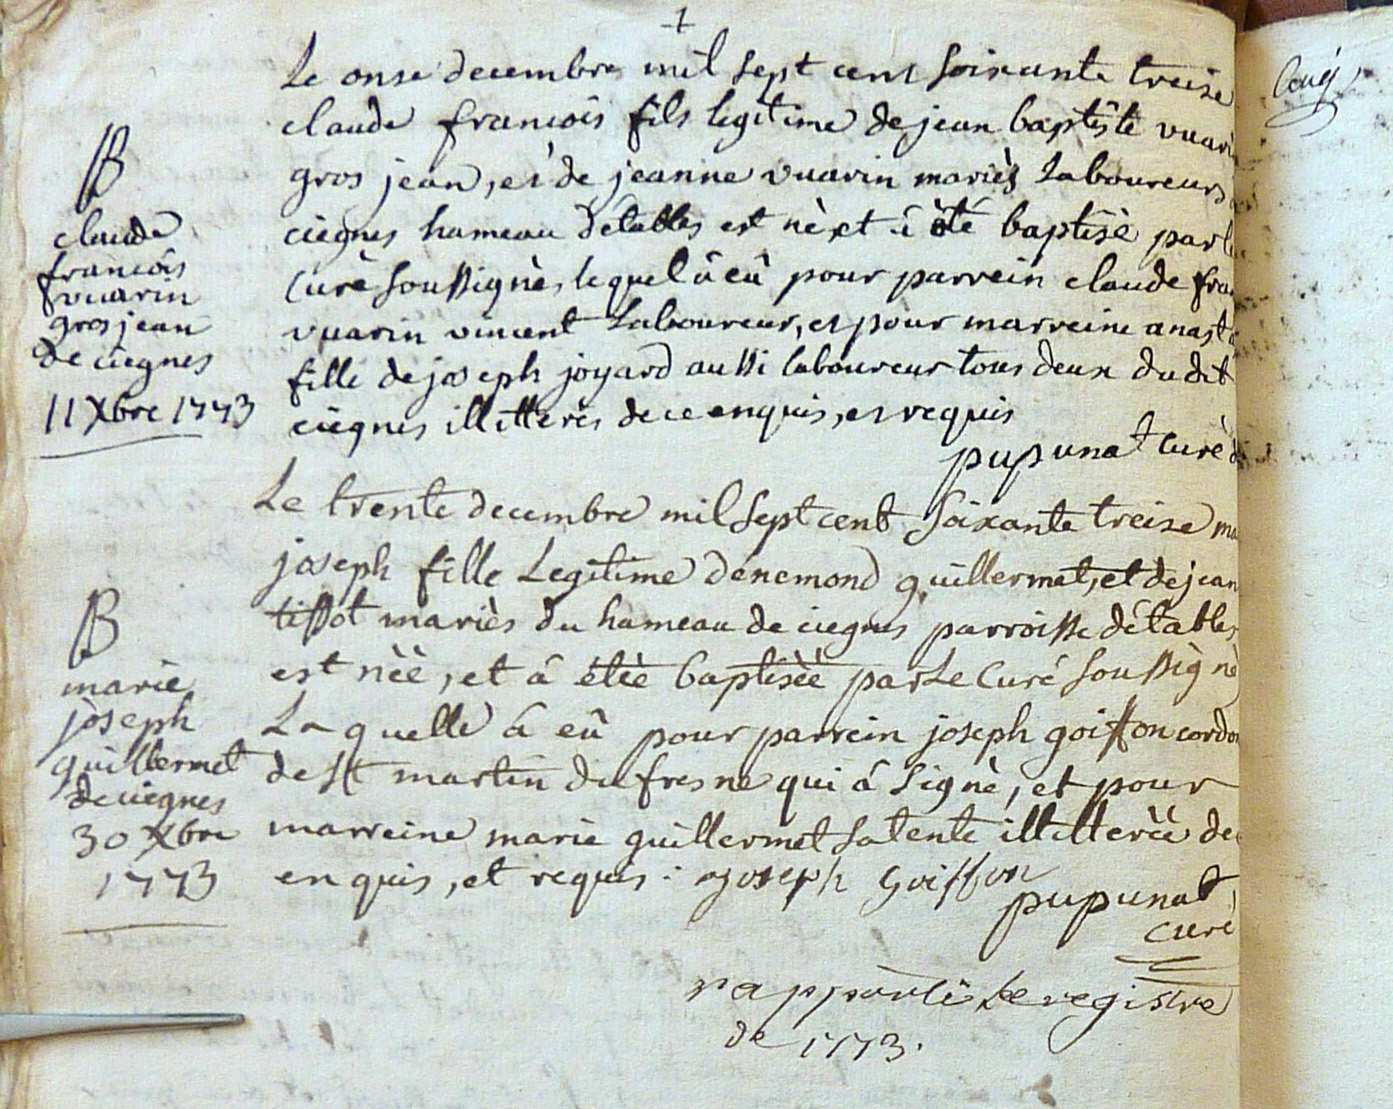 1
Le onse decembre mil sept cent soixante treise
claude francois fils legitime de jean baptiste vuarin
gros jean, et de jeanne vuarin mariès Laboureurs
ciegnes hameau détables est nè et â êté baptisè par le
Curè soussignè, lequel â eû pour parrein claude fran
vuarin vincent Laboureur, et pour marreine anast
fille de joseph joyard aussi laboureur tous deux du dit
ciegnes illitterès de ce enquis, et requis
pupunat curè
B
claude
francois
vuarin
gros jean
de ciegnes
11 Xbre 1773
Le trente decembre mil sept cent soixante treize ma
joseph fille Legitime dénemond guillermet, et de jean
tissot mariès du hameau de ciegnes parroisse détables
est nèè, et â étèe baptisèè par Le Curé soussignè
Laquelle â eû pour parrein joseph goiffon cordon
de st martin du fresne qui â signè, et pour
marreine marie guillermet sa tente illitterèe de
enquis, et requis : joseph Goiffon
pupunat
curè
B
marie
jòseph
guillermet
de ciegnes
30 Xbre
1773
rapportè Le registre
de 1773.